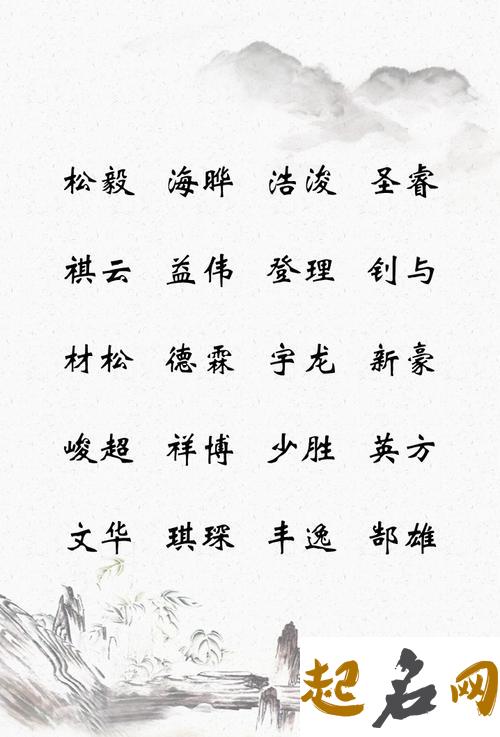 松毅 海晔 浩浚 圣睿
祺云 益伟 登理 钊与
材松 德霖 宇龙 新豪
峻超 祥博 少胜 英方
文华 琪琛 丰逸 郜雄
起名网